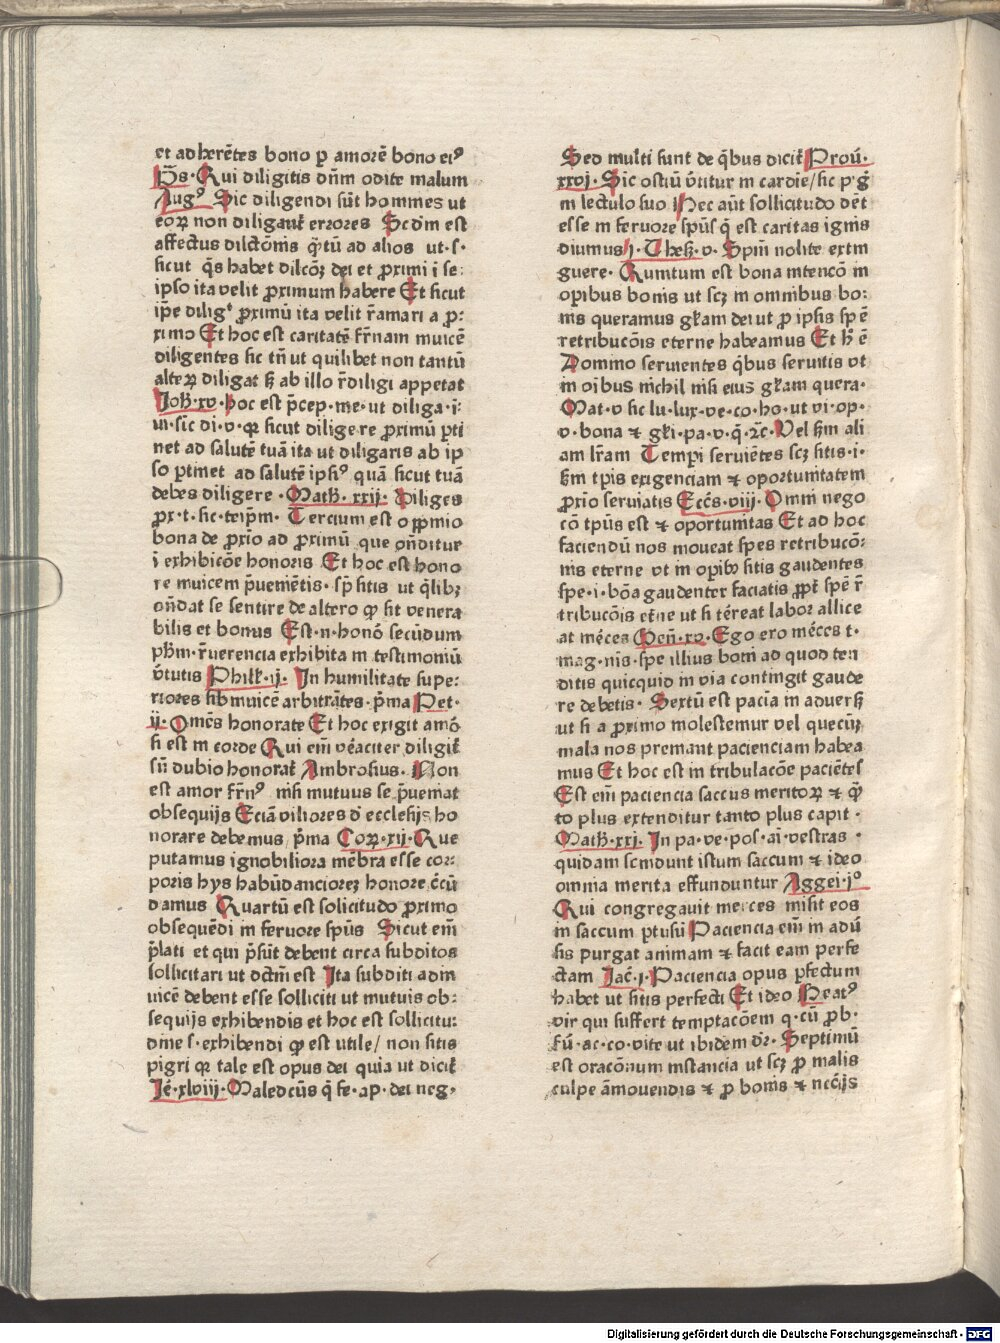 et adherētes bono ꝑ amorē bono eiꝰ
p̄s · Qui diligitis dn̄m odite malum
Augꝰ Sic diligendi sūt homines ut
eoꝝ non diligant᷑ errores Scd̄m est
affectus dilctōnis qͣtū ad alios ut · s ·
sicut qͥs habet dilcōꝫ dei et ꝓximi ī se:
ipso ita velit ꝓximum habere Et sicut
ip̄e diligᵗ ꝓximū ita velit r̄amari a ꝓ:
ximo Et hoc est caritatē fr̄nam inuicē
diligentes sic tn̄ ut quilibet non tantū
alteꝝ diligat sꝫ ab illo r̄diligi appetat
Joh̄ · xv · hoc est p̄cep · me · ut diliga · ī:
ui · sīc di · v · qꝛ sicut diligere ꝓximū ꝑti
net ad salutē tuā ita ut diligaris ab ip
so ꝑtinet ad salutē ipsiꝰ quā sicut tuā
debes diligere · Math̄ · xxij · Diliges
ꝓx · t · sic · teip̄m · Tercium est oꝑꝑnio
bona de ꝓxīo ad ꝓximū que on̄ditur
ī exhibicōe honoris Et hoc est hono
re inuicem p̄ueniētis · sp̄ sitis ut qͥlibꝫ
on̄dat se sentire de altero ꝙ sit venera
bilis et bonus Est · n · honō secūdum
ph̄m · r̄uerencia exhibita in testimoniū
v̄tutis Philł · ij · In humilitate supe:
riores sibi inuicē arbitrātes · p̄ma Pet ·
ij · Omēs honorate Et hoc exigit amō
si est in corde Qui eīm vēaciter diligit᷑
sn̄ dubio honorat᷑ Ambrosius · Non
est amor fr̄nꝰ nisi mutuus se p̄ueniat
obsequijs Eciā viliores d̄ ecclesijs ho
norare debemus p̄ma Coꝝ · xij · Que
putamus ignobiliora mēbra esse cor:
poris hys habūdanciorez honorē c̄cū
damus Quartū est solicitudo ꝓximo
obsequēdi in feruore spūs Sicut eīm
p̄lati et qui p̄sūt debent circa subditos
sollicitari ut octm̄ est Ita subditi ad in
uicē debent esse solliciti ut mutuis ob:
sequijs exhibendis et hoc est sollicitu:
dine s · exhibendi ꝙ est utile / non sitis
pigri qꝛ tale est opus dei quia ut dicit᷑
Jē · xlviij · Maledcūs q̄ fe · ap · dei neg ·
Sed multi sunt de qͥbus dicit᷑ Proū ·
xxvj · Sic ostiū v̄titur in cardīe / sic pͥgͥ
in lectulo suo Nec aūt sollicitudo dēt
esse in feruore spūs q̄ est caritas ignis
diuinus j · Theß · v · Spm̄ nolite extin
guere · Quintum est bona intencō in
operibus bonis ut scꝫ in omnibus bo:
nis queramus gr̄am dei ut ꝑ ipsis sp ē
retribucōis eterne habeamus Et h̄ ē
Domino seruientes qͥbus seruitis vt
in oībus nichil nisi eius gr̄am quera ·
Mat · v sic lu · lux · ve · co · ho · ut vi · op ·
v · bona ⁊ glī · pa · v · q̄ · ⁊c · Vel sm̄ ali
am lr̄am Tempi seruiētes scꝫ sitis · i ·
sm̄ tꝑis exigenciam ⁊ oportunitatem
ꝓxīo seruiatis Ecc̄s · viij · Omni nego
cō tp̄us est ⁊ oportunitas Et ad hoc
faciendū nos moueat spes retribucō:
nis eterne vt in oꝑibꝰ sitis gaudentes
spe · i · bōa gaudenter faciatis ꝓpt᷑ spē r̄
tribucōis et̄ne ut si tēreat labor allice
at mēces Gen̄ · xv · Ego ero mēces t ·
mag · nīs · spe illius boni ad quod ten
ditis quicquid in via contingit gaude
re debetis · Sextū est pacīa in aduerß
ut si a ꝓximo molestemur vel quecūꝫ
mala nos premant pacienciam habea
mus Et hoc est in tribulacōe paciētes
Est eīm paciencia saccus meritoꝝ ⁊ qͣ
to plus extenditur tanto plus capit ·
Math̄ · xxj · In pa · ve · pos · aī · vestras ·
quidam scindunt istum saccum ⁊ ideo
omnia merita effunduntur Aggei · jꝰ
Qui congregauit merces misit eos
in saccum ꝑtusū Paciencia eīm in adū
sis purgat animam ⁊ facit eam perfe
ctam Jac̄ · j · Paciencia opus ꝑfectum
habet ut sitis perfecti Et ideo Beatꝰ
vir qui suffert temptacōem q · cū ꝓb ·
fū · ac · co · vite ut ibidem dr̄ · Septimū
est oracōnum instancia ut scꝫ ꝓ malis
culpe āmouendis ⁊ ꝓ bonis ⁊ nēcījs